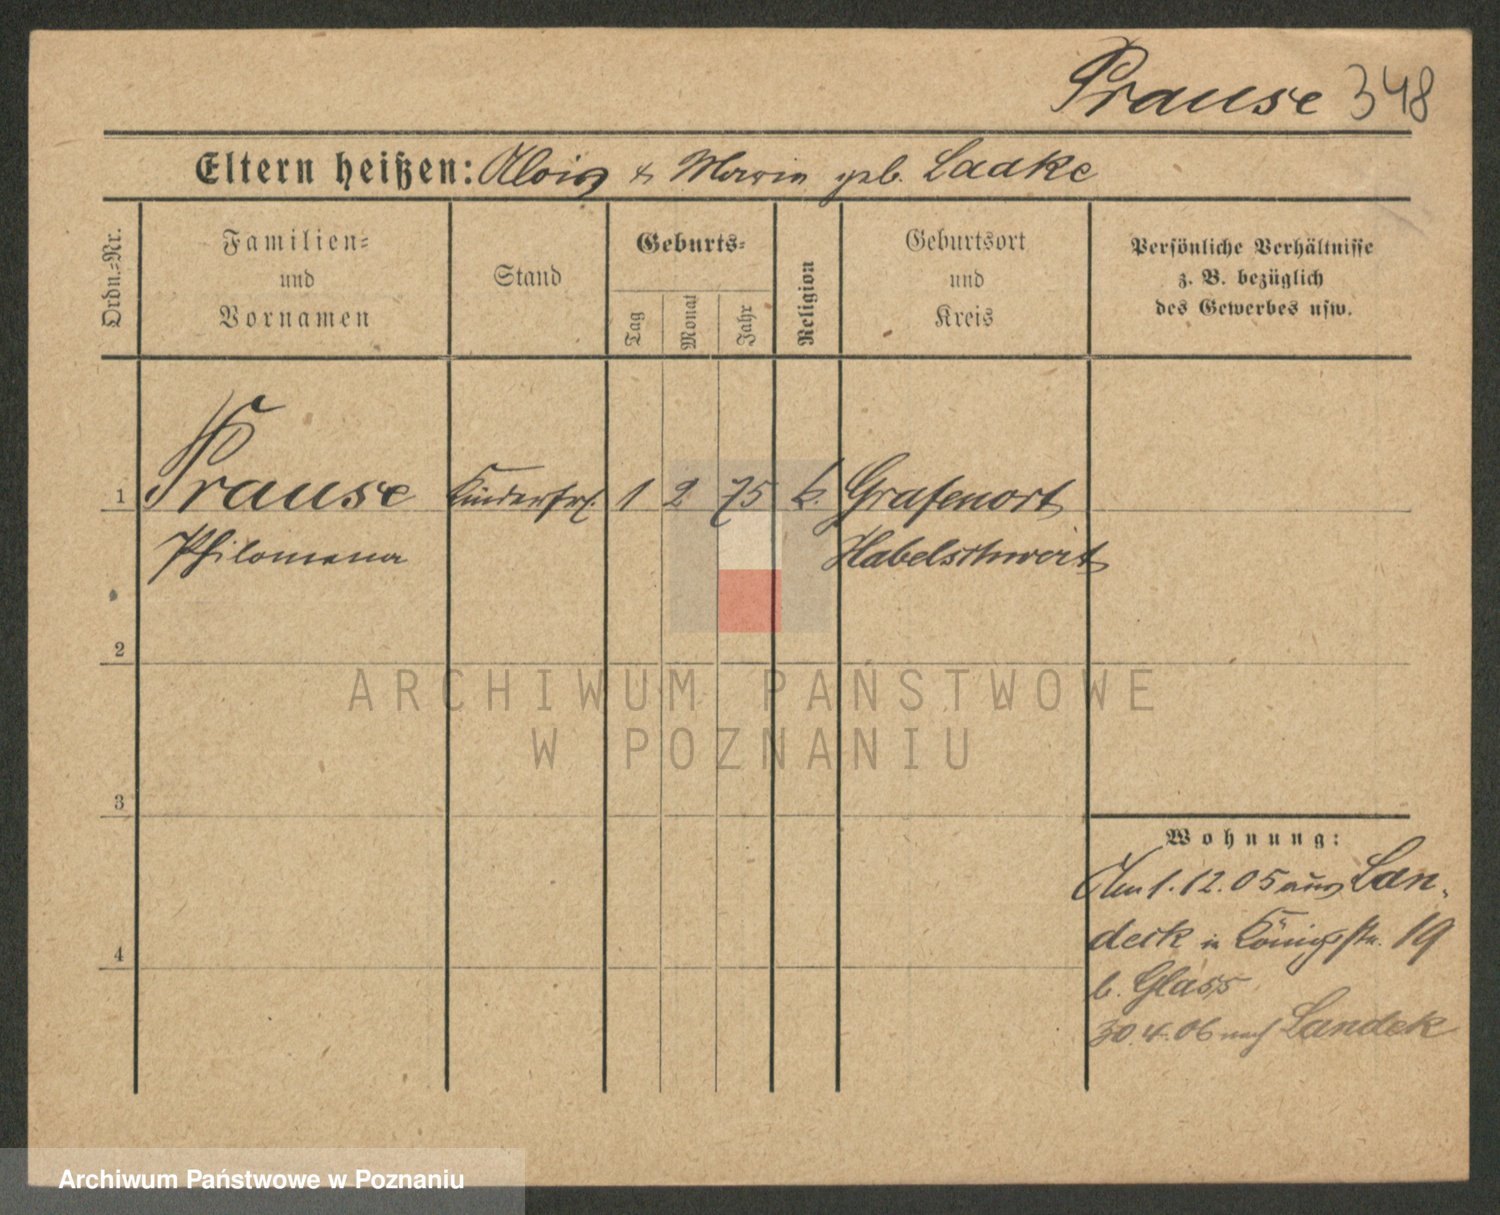 Prause 348
Eltern heißen: Alois & Maria geb. Laake
Ordn.-Nr.
Familien-
und
Vornamen
Stand
Geburts-
Tag
Monat
Jahr
Religion
Geburtsort
und
Kreis
Persönliche Verhältnisse
z. B. bezüglich
des Gewerbes usw.
1 Prause Kinderfrl. 1 2 75 k. Grafenort
Philomena Habelschwert
2
ARCHIWUM PAŃSTWOWE
W POZNANIU
3
Wohnung:
Am 1.12.05 aus Lan-
deck in Königsstr. 19
b. Glass
4
30.4.06 nach Landek
Archiwum Państwowe w Poznaniu